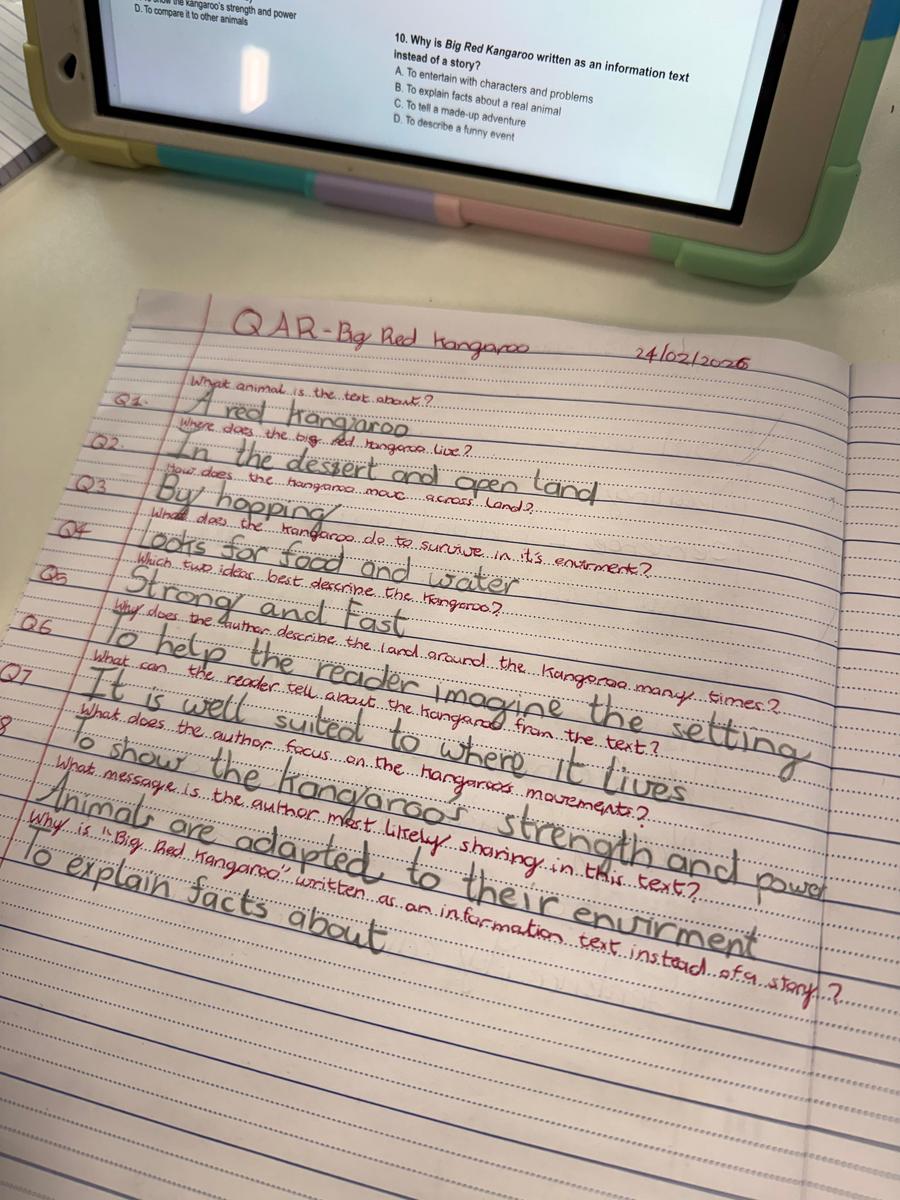 the kangaroo's strength and power
D. To compare it to other animals
10. Why is Big Red Kangaroo written as an information text
instead of a story?
A. To entertain with characters and problems
B. To explain facts about a real animal
C. To tell a made-up adventure
D. To describe a funny event
QAR-Big Red Kangaroo 24/02/2026
What animal is the text about?
Q1. A red kangaroo
Where does the big red kangaroo live?
Q2. In the dessert and open land
How does the kangaroo move across land?
Q3 By hopping
What does the kangaroo do to survive in it's envirment?
Q4 looks for food and water
Which two ideas best describe the kangaroo?
Q5 Strong and Fast
Why does the author describe the land around the kangaroo many times?
Q6 To help the reader imagine the setting
What can the reader tell about the kangaroo from the text?
Q7 It is well suited to where it lives
What does the author focus on the kangaroos movements?
8 To show the kangaroo's strength and power
What message is the author most likely sharing in this text?
Animals are adapted to their envirment
Why is "Big Red Kangaroo" written as an information text instead of a story?
To explain facts about